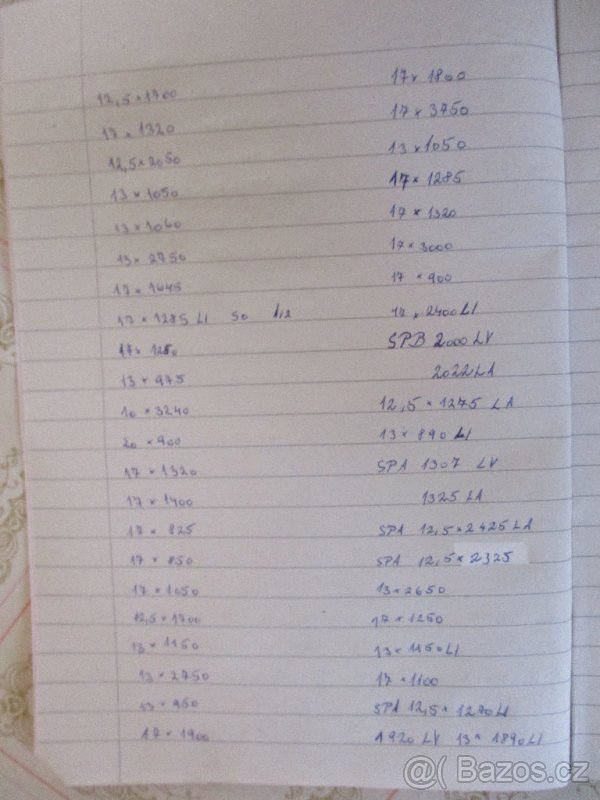 12,5 × 1700
17 × 1320
12,5 × 2050
13 × 1050
13 × 1060
13 × 2750
17 × 1645
17 × 1285 LI 50 1,2
17 × 1250
13 × 975
10 × 3240
20 × 900
17 × 1320
17 × 1400
17 × 825
17 × 850
17 × 1050
12,5 × 1700
13 × 1150
13 × 2750
13 × 950
17 × 1900
17 × 1800
17 × 3750
13 × 1050
17 × 1285
17 × 1320
17 × 3000
17 × 900
17 × 2400 LI
SPB 2000 LV
2022 LA
12,5 × 1275 LA
13 × 890 LI
SPA 1307 LV
1325 LA
SPA 12,5 × 2425 LA
SPA 12,5 × 2325
13 × 2650
17 × 1250
13 × 1150 LI
17 × 1100
SPA 12,5 × 1270 LI
1920 LV 13 × 1890 LI
@( Bazos.cz